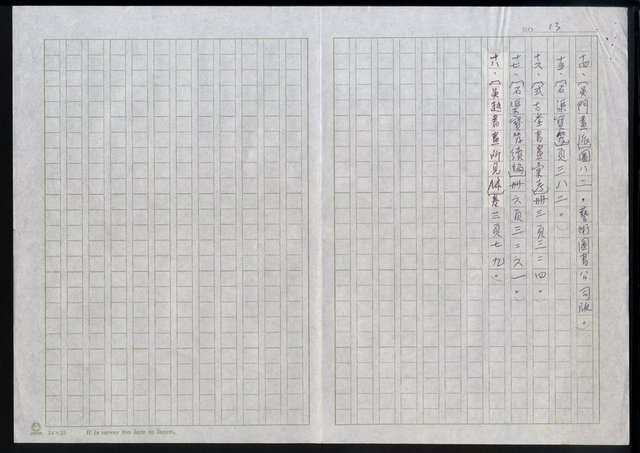 NO. 13
十四、〔吳門畫派〕圖八二。藝術圖書公司版。
十五、〔石渠寶笈〕頁三八二。
十六、〔式古堂書畫彙考〕冊三頁三二四。
十七、〔石渠寶笈續編〕冊六頁三二六一。
十八、〔吳越書畫所見錄〕卷三頁七九。
24×25 It is never too late to learn.